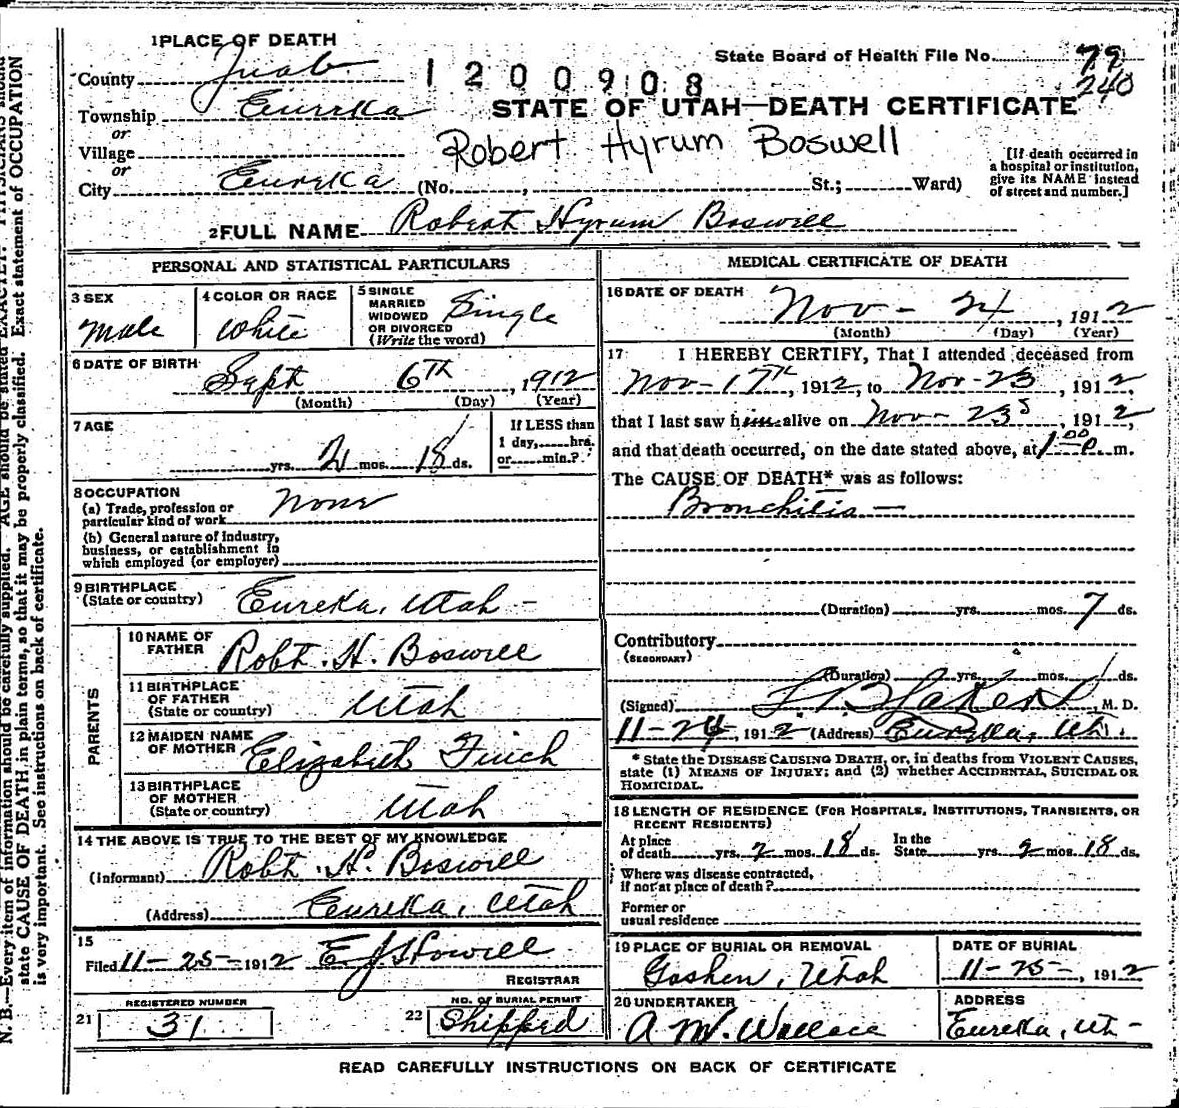 1 PLACE OF DEATH
State Board of Health File No. 79
240
County Juab
1200908
Township Eureka
STATE OF UTAH—DEATH CERTIFICATE
or
Village
Robert Hyrum Boswell
or
City Eureka (No. , St.; Ward)
[If death occurred in
a hospital or institution,
give its NAME instead
of street and number.]
2 FULL NAME Robert Hyrum Boswell
PERSONAL AND STATISTICAL PARTICULARS
3 SEX
Male
4 COLOR OR RACE
White
5 SINGLE
MARRIED
WIDOWED
OR DIVORCED
(Write the word)
Single
6 DATE OF BIRTH
Sept 6th, 1912
(Month) (Day) (Year)
7 AGE
yrs. 2 mos. 18 ds.
If LESS than
1 day, hrs.
or min.?
8 OCCUPATION
(a) Trade, profession or
particular kind of work
None
(b) General nature of Industry,
business, or establishment in
which employed (or employer)
9 BIRTHPLACE
(State or country)
Eureka, Utah -
PARENTS
10 NAME OF
FATHER
Robt. H. Boswell
11 BIRTHPLACE
OF FATHER
(State or country)
Utah
12 MAIDEN NAME
OF MOTHER
Elizabeth Finch
13 BIRTHPLACE
OF MOTHER
(State or country)
Utah
14 THE ABOVE IS TRUE TO THE BEST OF MY KNOWLEDGE
(Informant) Robt. H. Boswell
(Address) Eureka, Utah
15
Filed 11-25-1912 E J Howell
REGISTRAR
REGISTERED NUMBER
21 31
NO. OF BURIAL PERMIT
22 Shipped
MEDICAL CERTIFICATE OF DEATH
16 DATE OF DEATH
Nov - 24, 1912
(Month) (Day) (Year)
17 I HEREBY CERTIFY, That I attended deceased from
Nov-17th, 1912, to Nov-23, 1912
that I last saw him alive on Nov-23, 1912,
and that death occurred, on the date stated above, at 1:00 m.
The CAUSE OF DEATH* was as follows:
Bronchitis —
(Duration) yrs. mos. 7 ds.
Contributory
(SECONDARY)
(Duration) yrs. mos. ds.
(Signed) M. D.
11-24, 1912 (Address) Eureka, Ut.
* State the DISEASE CAUSING DEATH, or, in deaths from VIOLENT CAUSES,
state (1) MEANS OF INJURY; and (2) whether ACCIDENTAL, SUICIDAL OR
HOMICIDAL.
18 LENGTH OF RESIDENCE (FOR HOSPITALS, INSTITUTIONS, TRANSIENTS, OR
RECENT RESIDENTS)
At place
of death yrs. 2 mos. 18 ds.
In the
State yrs. 2 mos. 18 ds.
Where was disease contracted,
if not at place of death?
Former or
usual residence
19 PLACE OF BURIAL OR REMOVAL
Goshen, Utah
DATE OF BURIAL
11-25-, 1912
20 UNDERTAKER
A M. Wallace
ADDRESS
Eureka, Ut -
READ CAREFULLY INSTRUCTIONS ON BACK OF CERTIFICATE
N. B.—Every item of information should be carefully supplied. AGE should be stated EXACTLY. PHYSICIANS should
state CAUSE OF DEATH in plain terms, so that it may be properly classified. Exact statement of OCCUPATION
is very important. See instructions on back of certificate.